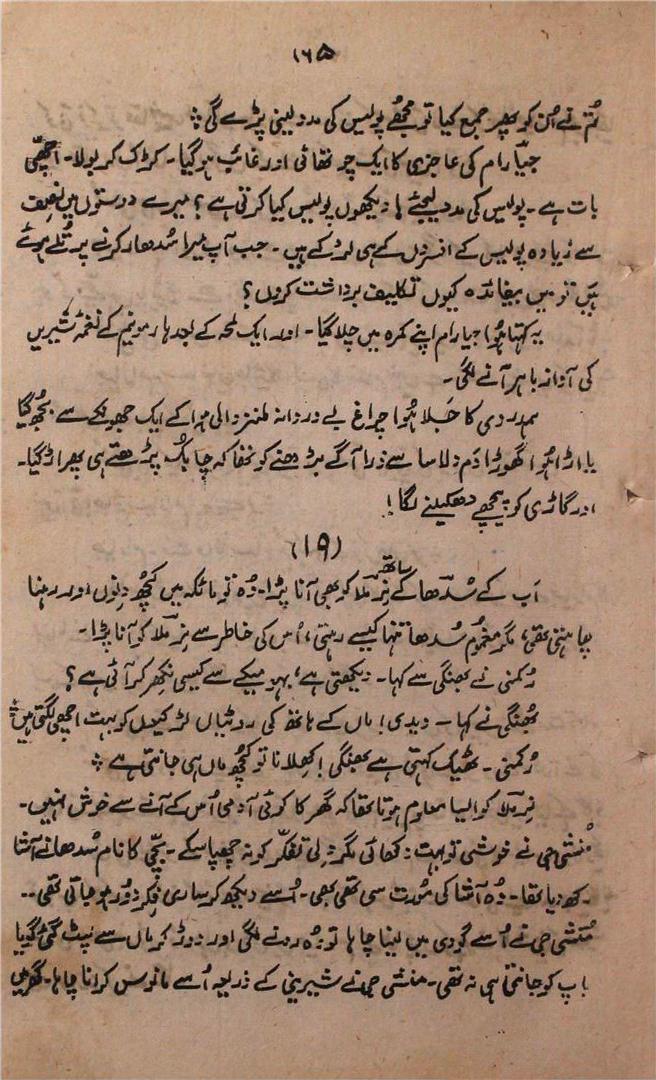 ۱۶۵
تُم نے اُن کو پھر جمع کیا تو مجھے پولیس کی مدد لینی پڑے گی ؞
جیا رام کی عاجزی کا ایک چوتھائی اور غائب ہو گیا۔ کڑک کر بولا۔ اچھّی
بات ہے۔ پولیس کی مدد لیجئے ہا دیکھوں پولیس کیا کرتی ہے ؟ میرے دوستوں میں نصف
سے زیادہ پولیس کے افسروں کے ہی لڑکے ہیں۔ جب آپ میرا سُدھار کرنے پر تُلے ہوئے
ہیں تو میں بیفائدہ کیوں تکلیف برداشت کروں ؟
یہ کہتا ہُوا جیا رام اپنے کمرہ میں چلا گیا۔ اور ایک لمحہ کے بعد ہارمونیم کے نغمۂ شیریں
کی آواز باہر آنے لگی۔
ہمدردی کا جَلا ہُوا چراغ بے دردانہ طنز والی ہوا کے ایک جھونکے سے بُجھ گیا
یا اڑا ہُوا گھوڑا دَم دلاسا سے ذرا آگے بڑھنے کو تھا کہ چابُک پڑھتے ہی پھر اڑ گیا۔
اور گاڑی کو پیچھے دھکیلنے لگا!
(۱۹)
اَب کے سُدّھا کے ساتھ نِرمَلا کو بھی آنا پڑا۔ وُہ تو مائکہ میں کُچھ دِنوں اور رہنا
چاہتی تھی، مگر مغمُوم سُدھا تنہا کیسے رہتی، اُس کی خاطر سے نِرمَلا کو آنا پڑا۔
رُکمنی نے بھنگی سے کہا۔ دیکھتی ہے، بہو میکے سے کیسی نِکھر کر آئی ہے؟
بُھنگی نے کہا۔ دیدی! ماں کے ہاتھ کی روٹیاں لڑکیوں کو بہت اچھی لگتی ہیں ؞
رُکمنی۔ ٹھیک کہتی ہے بھنگی! کِھلانا تو کُچھ ماں ہی جانتی ہے ؞
نِرمَلا کو ایسا معلوم ہوتا تھا کہ گھر کا کوئی آدمی اُس کے آنے سے خوش نہیں۔
مُنشی جی نے خوشی تو بہت دکھائی مگر دِلی تفکّر کو نہ چھپا سکے۔ بچّی کا نام سُدھا نے آشا
رکھ دیا تھا۔ وُہ آشا کی مُورت سی تھی بھی۔ اُسے دیکھ کر ساری فِکر دُور ہو جاتی تھی۔۔
مُنشی جی نے اُسے گودی میں لینا چاہا تو وُہ رونے لگی اور دوڑ کر ماں سے لپٹ گئی گویا
باپ کو جانتی ہی نہ تھی۔ منشی جی نے شیرینی کے ذریعہ اُسے مانوس کرانا چاہا۔ گھر میں